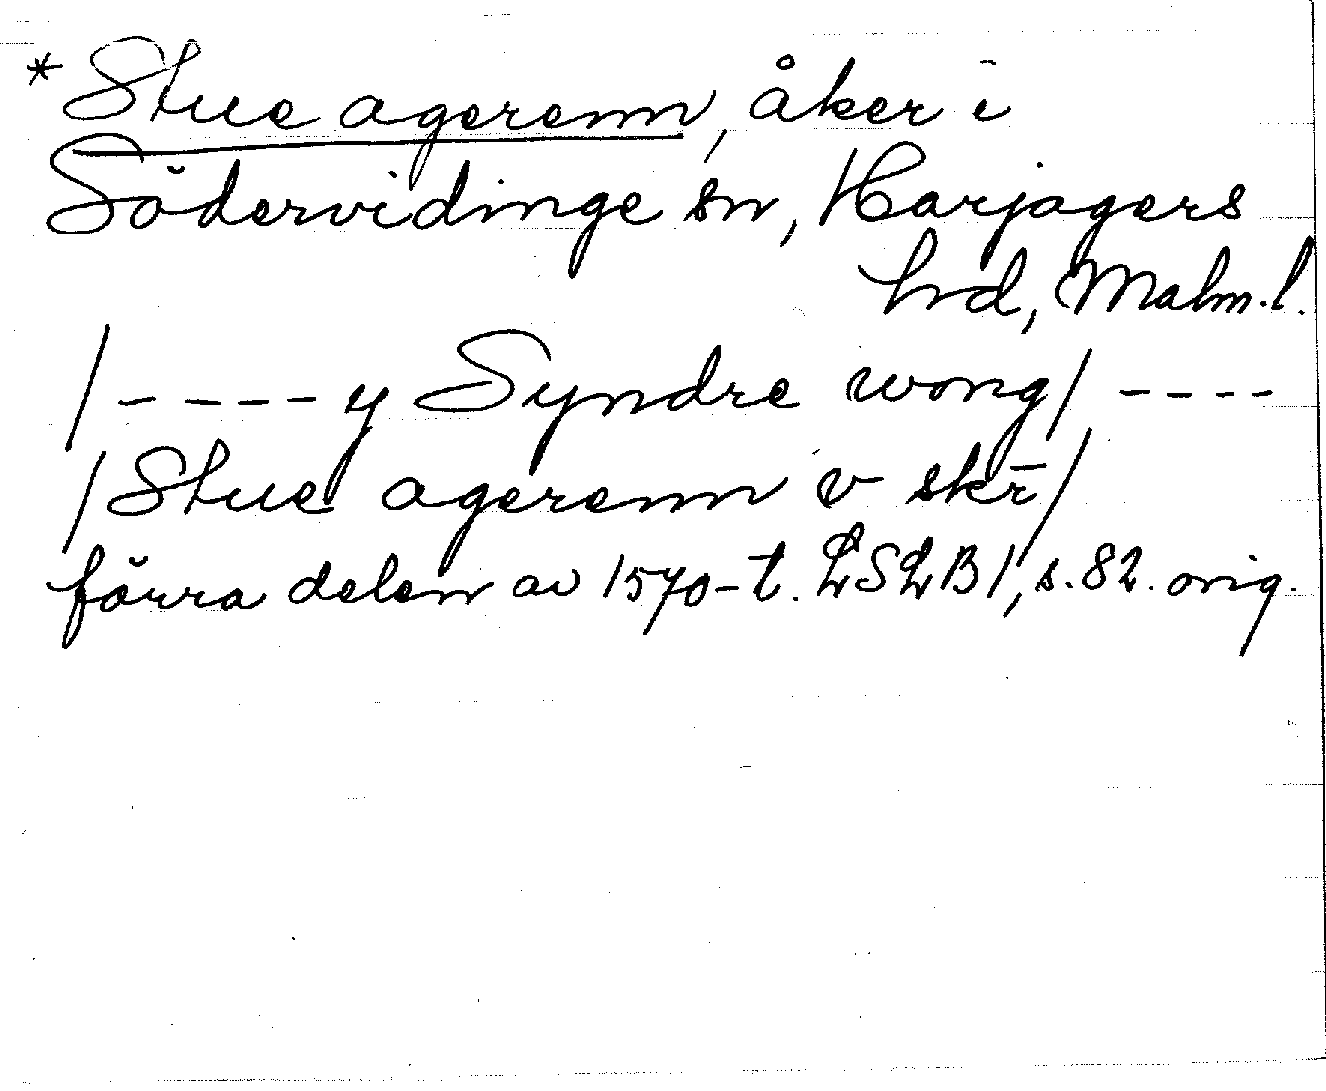 * Stue agerenn, åker i
Södervidinge sn, Harjagers
hd, Malm.l.
/ - - - - y Syndre wong / - - - -
/ Stue agerenn v skr̄ /
förra delen av 1570-t. LSLB1, s. 82. orig.